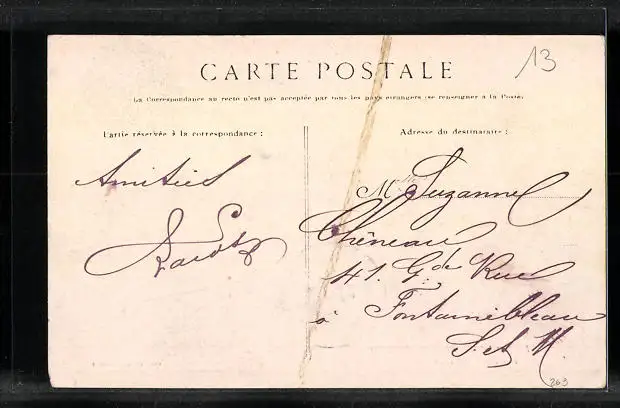 13
CARTE POSTALE
La Correspondance au recto n'est pas acceptée par tous les pays étrangers (se renseigner à la Poste).
Partie réservée à la correspondance :
Adresse du destinataire :
Amitiés
Mlle Suzanne
Chêneau
41. Gde Rue
à Fontainebleau
S. et M.
263